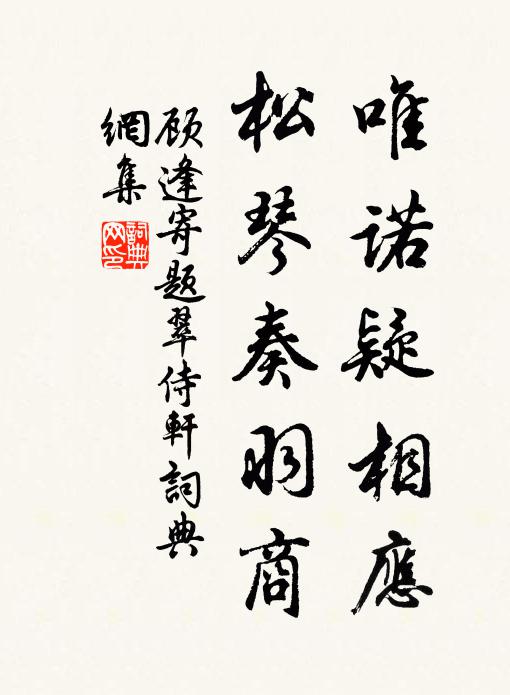 唯諾疑相應
松琴奏羽商
顾逢寄題翠侍軒詞典
網集
詞典
网印